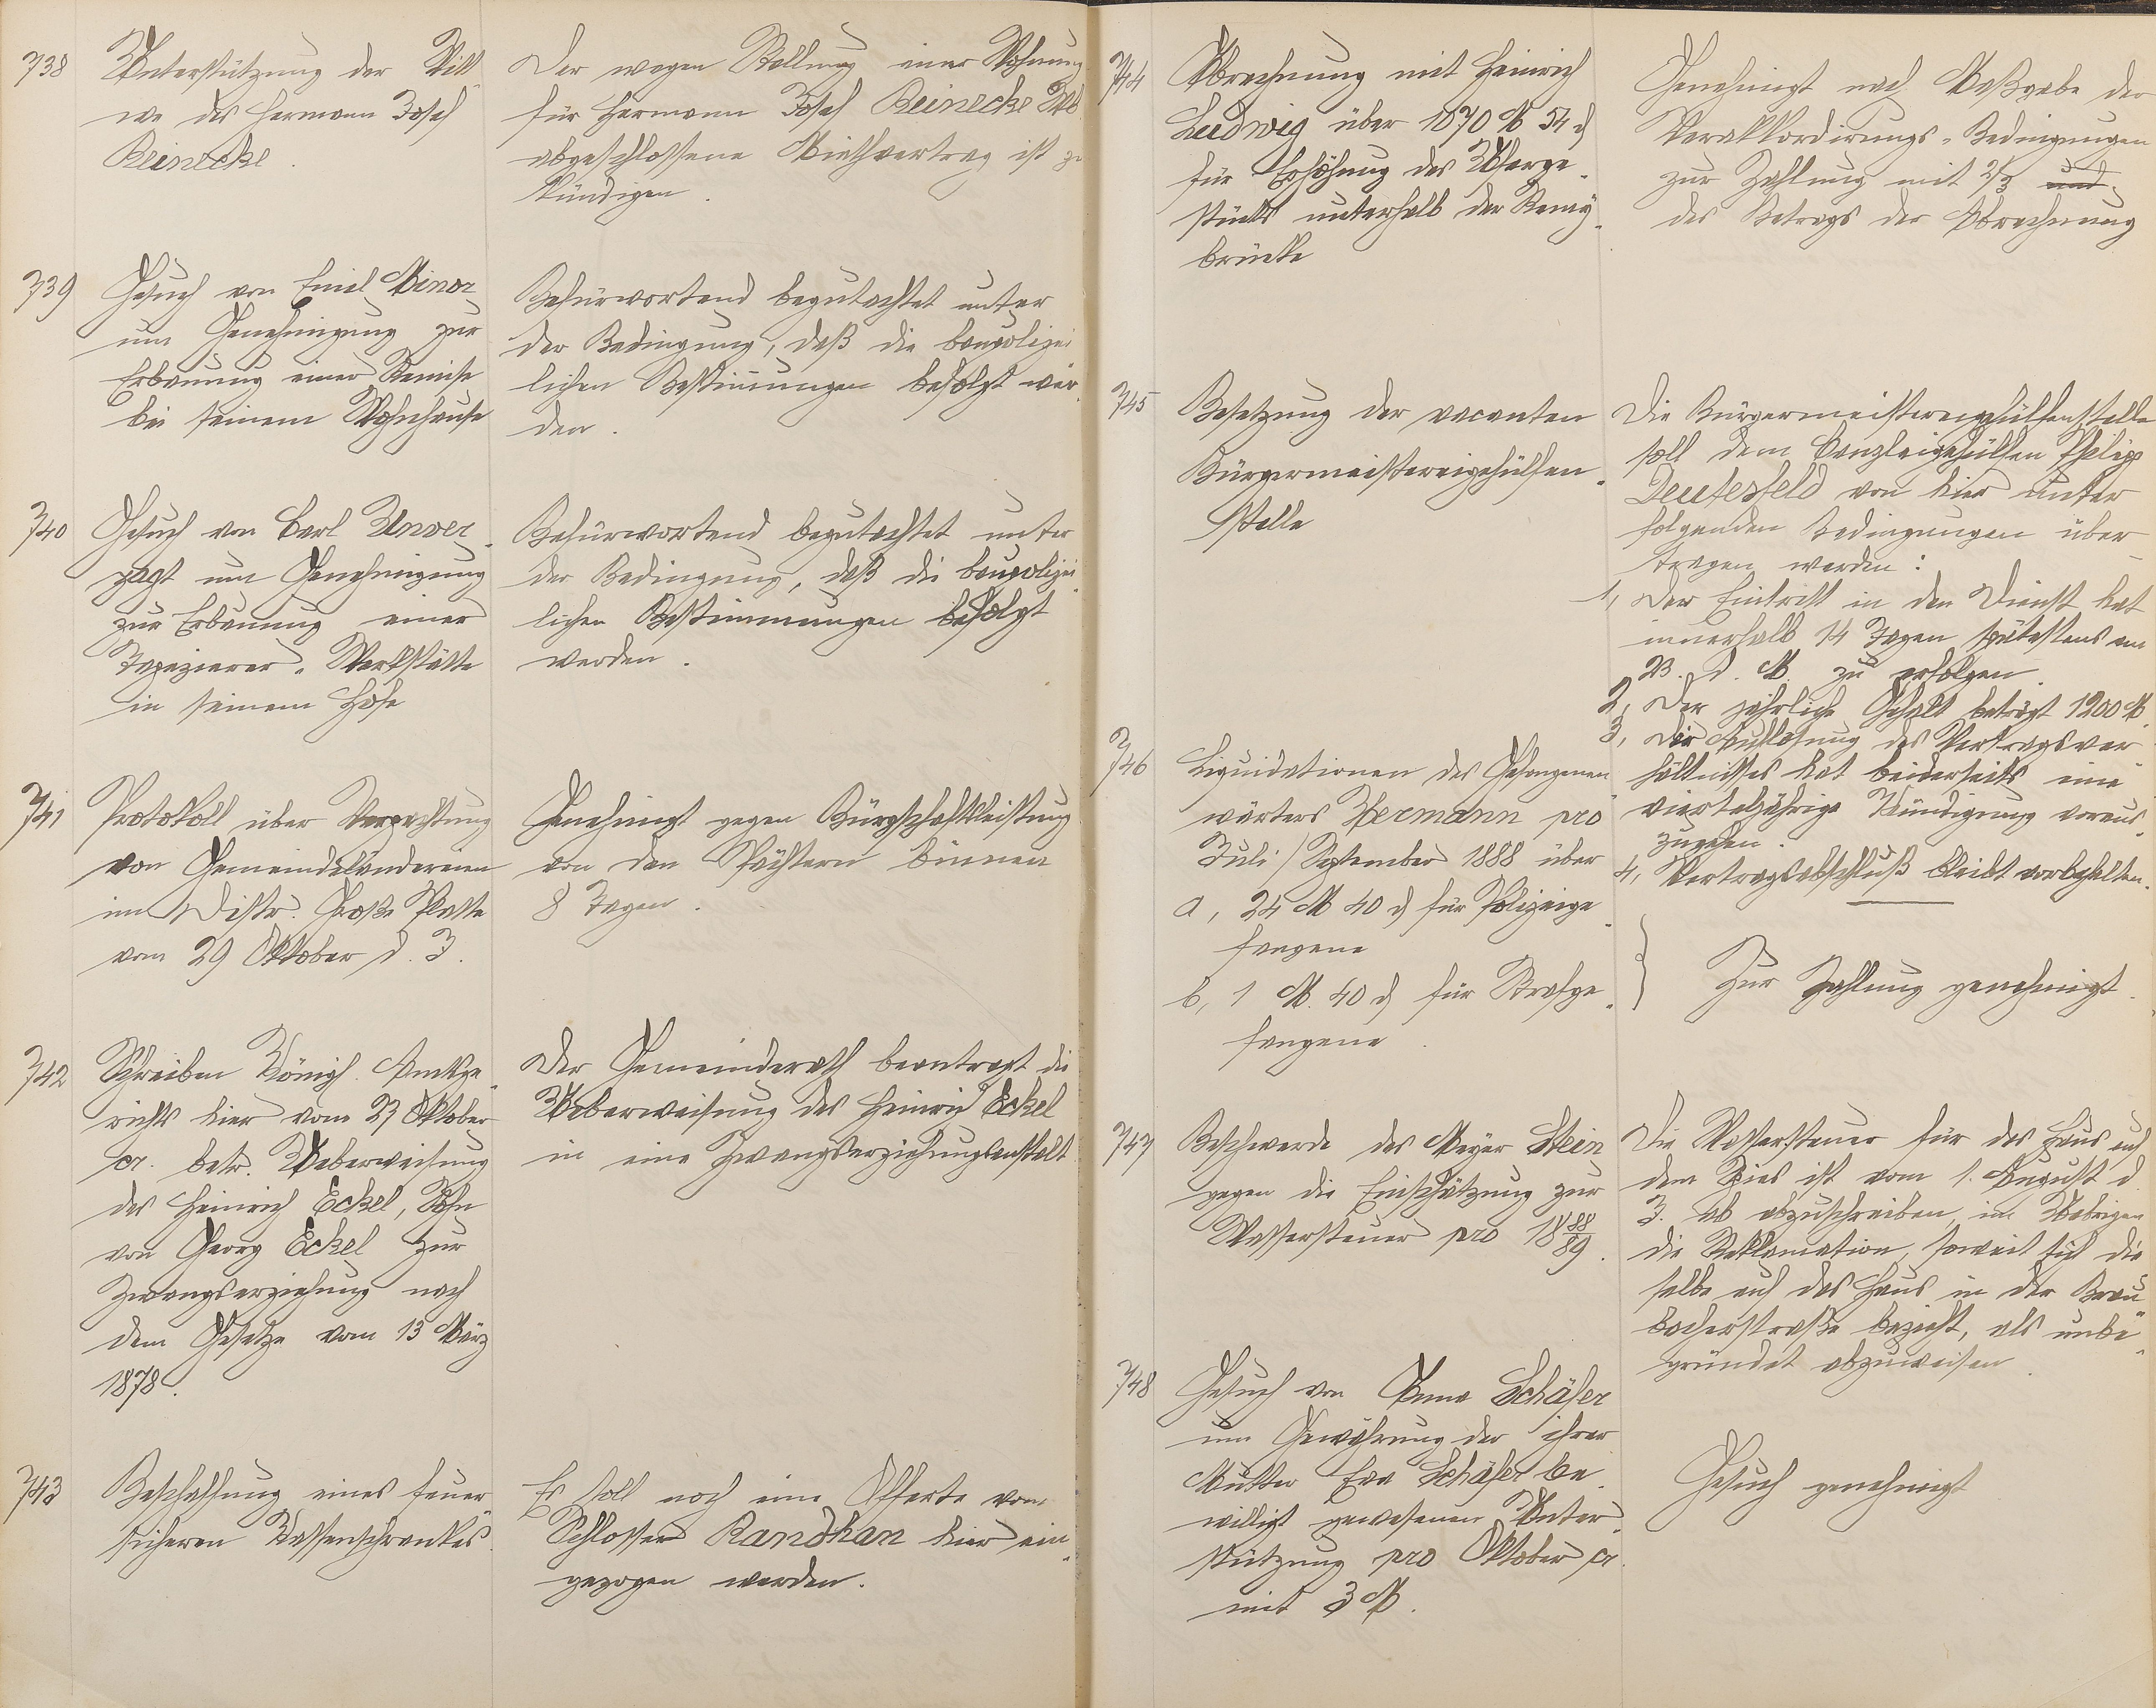 738
Unterstützung der Witt-
we des Hermann Josef
Reinecke.
Der wegen Stellung einer Wohnung
für Hermann Josef Reinecke
abgeschlossene Miethvertrag ist zu
kündigen.
739
Gesuch von Emil Minor
um Genehmigung zur
Erbauung einer Remise
bei seinem Wohnhause
Befürwortend begutachtet unter
der Bedingung, daß die baupolizei-
lichen Bestimmungen befolgt wer-
den.
740
Gesuch von Carl Unver-
zagt um Genehmigung
zur Erbauung einer
Tapezierer-Werkstätte
in seinem Hofe
Befürwortend begutachtet unter
der Bedingung, daß die baupolizei-
lichen Bestimmungen befolgt
werden.
741
Protokoll über Verpachtung
von Gemeindeländereien
im Distr. Große Platte
vom 29 Oktober d. J.
Genehmigt gegen Bürgschaftsleistung
von den Pächtern binnen
8 Tagen.
742
Schreiben Königl. Amtsge-
richts hier vom 27 Oktober
cr. betr. Ueberweisung
des Heinrich Eckel, Sohn
von Georg Eckel zur
Zwangserziehung nach
dem Gesetze vom 13 März
1878.
Der Gemeinderath beantragt die
Ueberweisung des Heinrich Eckel
in eine Zwangserziehungsanstalt
743
Beschaffung eines feuer-
sicheren Kassenschrankes.
Es soll noch eine Offerte vom
Schlosser Randhan hier ein-
gezogen werden.
744
Abrechnung mit Heinrich
Ludwig über 1070 M 54 d
für Erhöhung des Ufarge-
stücks unterhalb der Remy-
brücke
Genehmigt nach Maßgabe der
Verakkordirungs-Bedingungen
zur Zahlung mit 2/3 und
des Betrags der Abrechnung
745
Besetzung der vacanten
Bürgermeistereigehülfen-
stelle
Die Bürgermeistereigehülfenstelle
soll dem Canzleigehülfen Philipp
Deutesfeld von hier unter
folgenden Bedingungen über-
tragen werden:
1, Der Eintritt in den Dienst hat
innerhalb 14 Tagen spätestens am
23. d. M. zu erfolgen.
2, Der jährliche Gehalt beträgt 1200 M.
3, Der Auflösung des Vertragsver-
hältnisses hat beiderseits eine
vierteljährige Kündigung voraus-
zugehen.
4, Vertragsabschluß bleibt vorbehalten.
746
Liquidationen des Gefangenen-
wärters Hermann pro
Juli/September 1888 über
a, 24 M 40 d für Polizeige-
fangene
b, 1 M. 40 d für Strafge-
fangene.
Zur Zahlung genehmigt.
747
Beschwerde des Meyer Stein
gegen die Einschätzung zur
Wassersteuer pro 1888/89.
Die Wassersteuer für das Haus auf
dem Kies ist vom 1. August d.
J. ab abzuschreiben, im Uebrigen
die Reklamation, soweit sich die-
selbe auf das Haus in der Brau-
bacherstraße bezieht, als unbe-
gründet abzuweisen.
748
Gesuch von Anna Schäfer
um Gewährung der ihrer
Mutter Eva Schäfer be-
willigt gewesenen Unter-
stützung pro Oktober cr.
mit 3 M.
Gesuch genehmigt